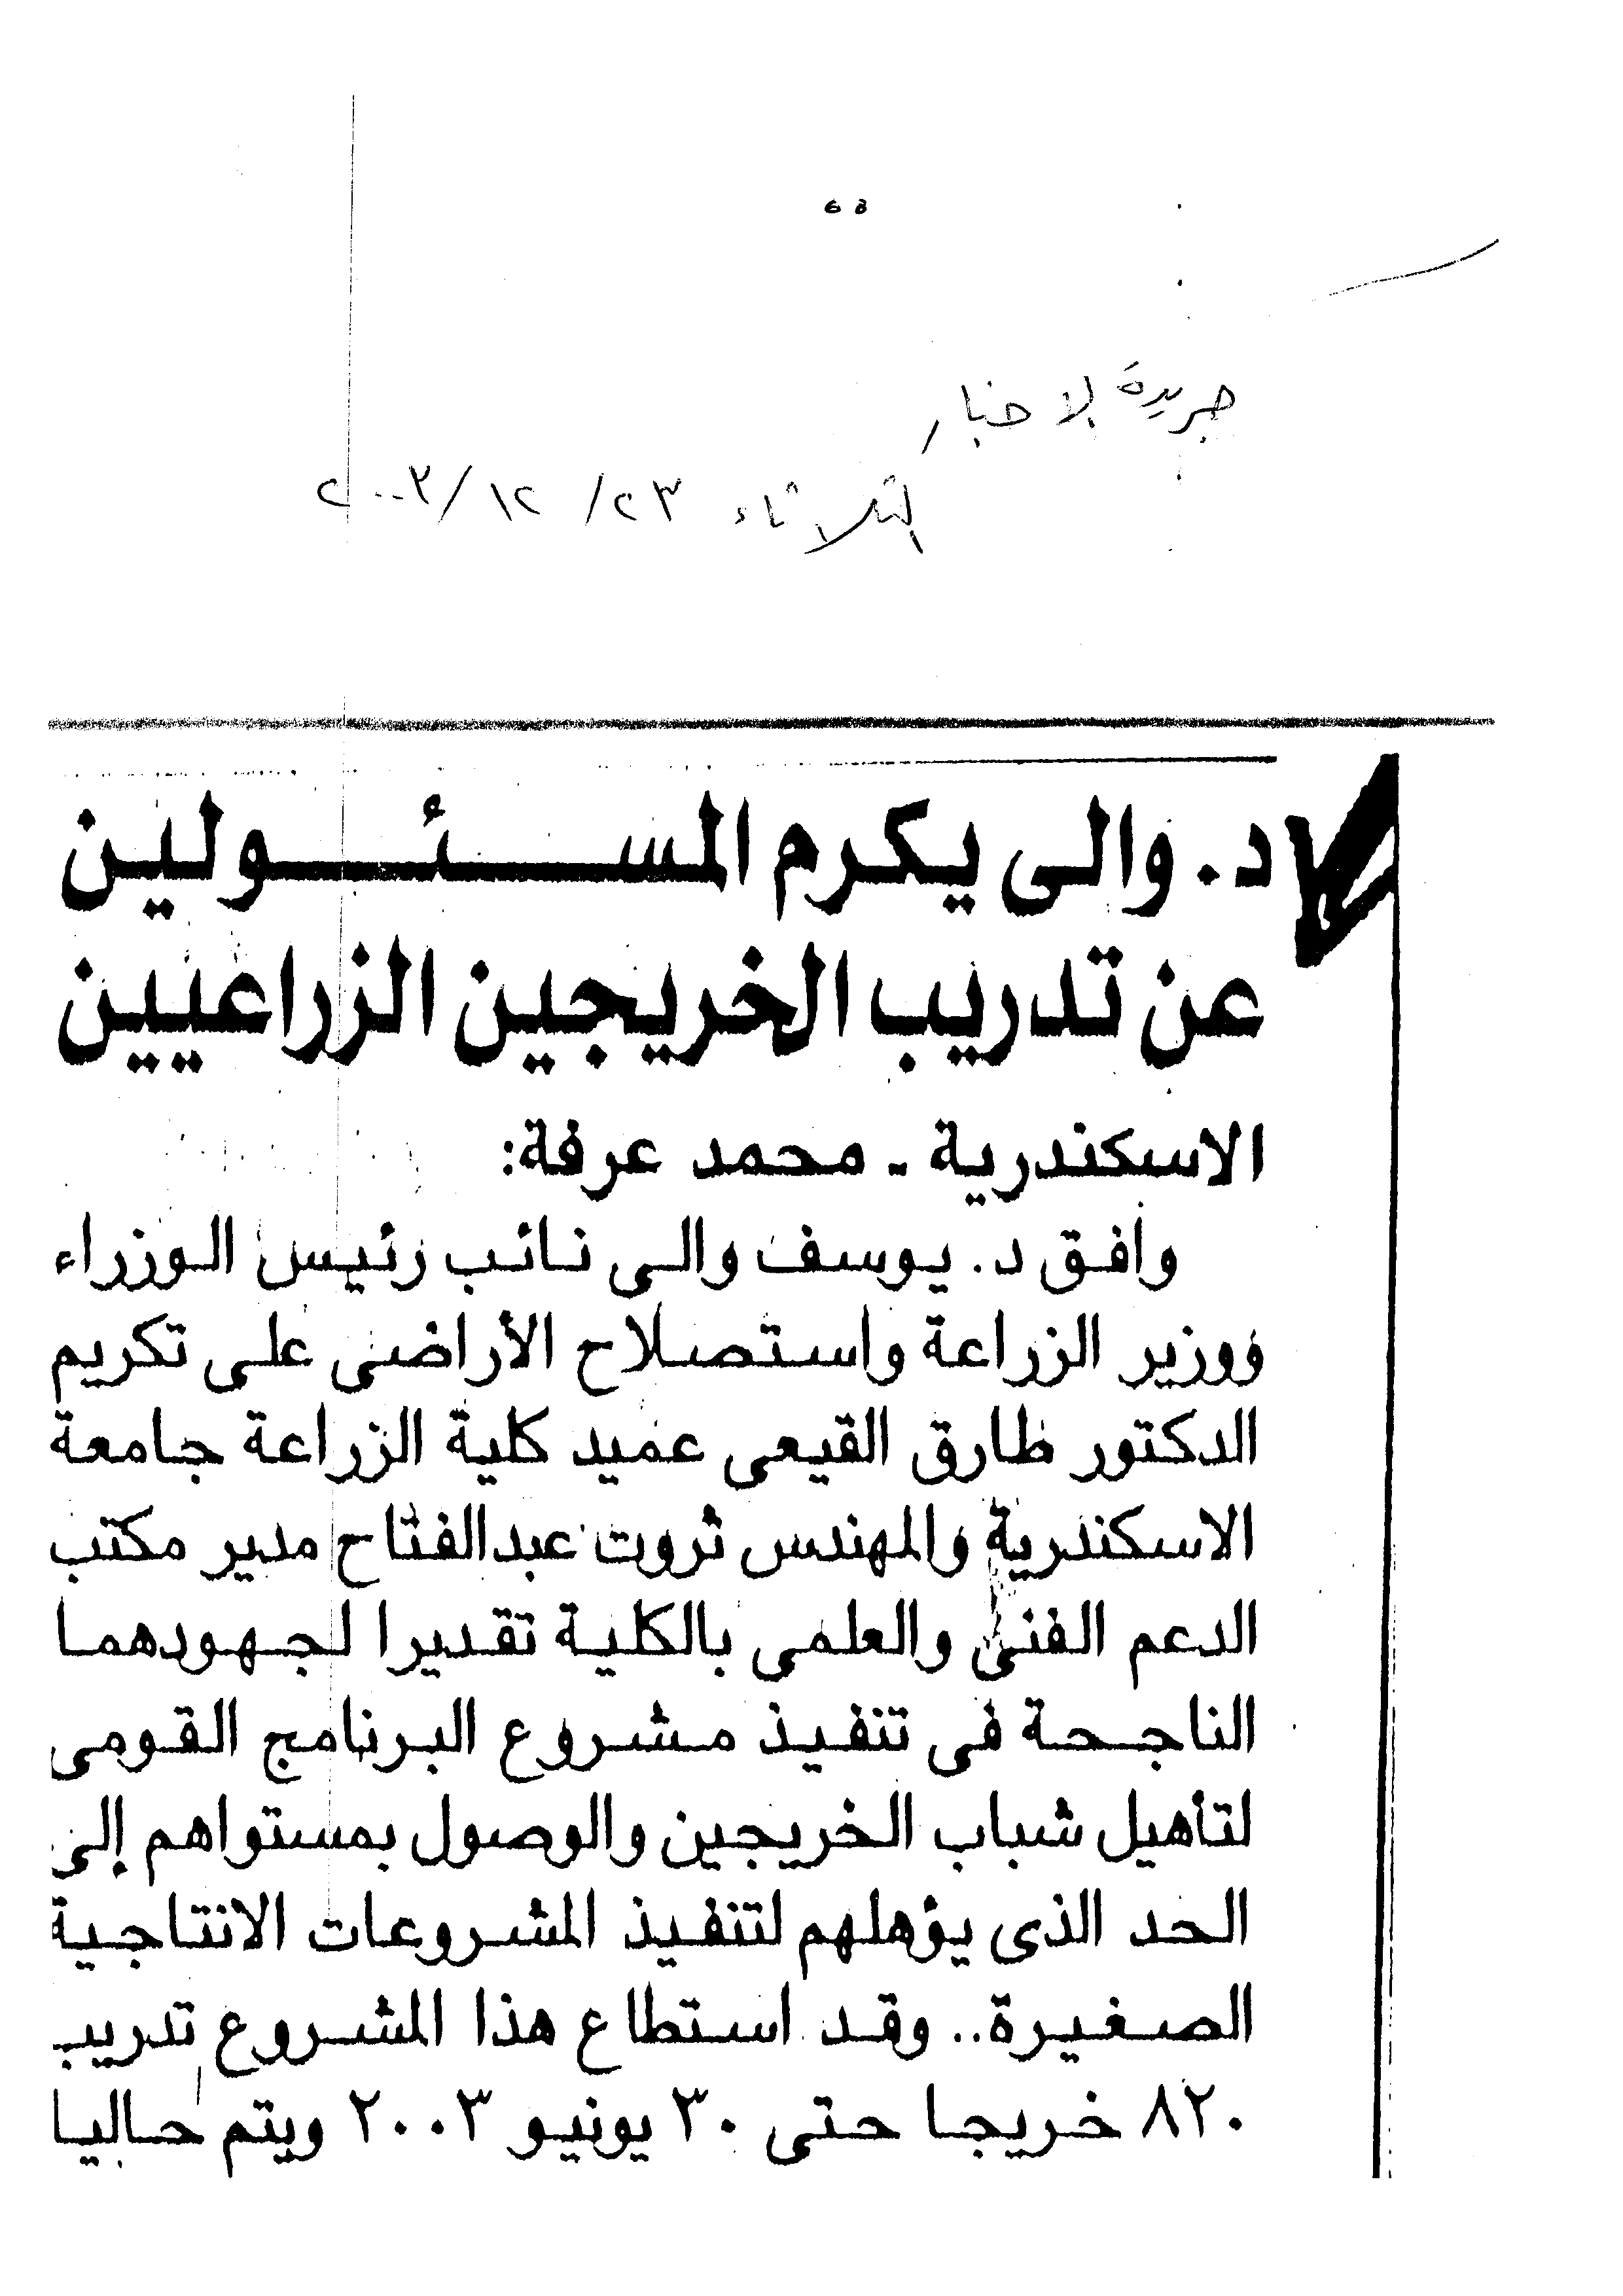 جريدة الاخبار
الثلاثاء ٢٣/ ١٢/ ٢٠٠٣
د. والى يكرم المسئولين
عن تدريب الخريجين الزراعيين
الاسكندرية ـ محمد عرفة:
وافق د. يوسف والى نائب رئيس الوزراء
ووزير الزراعة واستصلاح الأراضى على تكريم
الدكتور طارق القيعى عميد كلية الزراعة جامعة
الاسكندرية والمهندس ثروت عبدالفتاح مدير مكتب
الدعم الفنى والعلمى بالكلية تقديرا لجهودهما
الناجحة فى تنفيذ مشروع البرنامج القومى
لتأهيل شباب الخريجين والوصول بمستواهم إلى
الحد الذى يؤهلهم لتنفيذ المشروعات الانتاجية
الصغيرة.. وقد استطاع هذا المشروع تدريب
٨٢٠ خريجا حتى ٣٠ يونيو ٢٠٠٣ ويتم حاليا